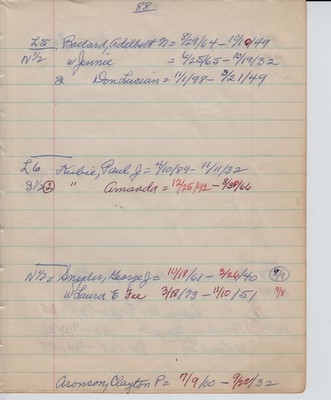 88
L5 Ballard, Adelbert N = 8/29/64 - 10/9/49
N 1/2 w Jennie = 6/25/65 - 10/19/32
2 Don Lucian = 11/1/98 - 3/21/49
L6 Kubie, Paul J = 4/10/89 - 11/11/32
S 1/2 2 " Amanda = 12/25/92 - 8/30/66
N 1/2 Snyder, George J = 10/18/61 - 3/26/40
w Laura E Fee 3/18/73 - 11/10/51 9/8
Aronson, Clayton P = 7/9/00 - 9/22/32